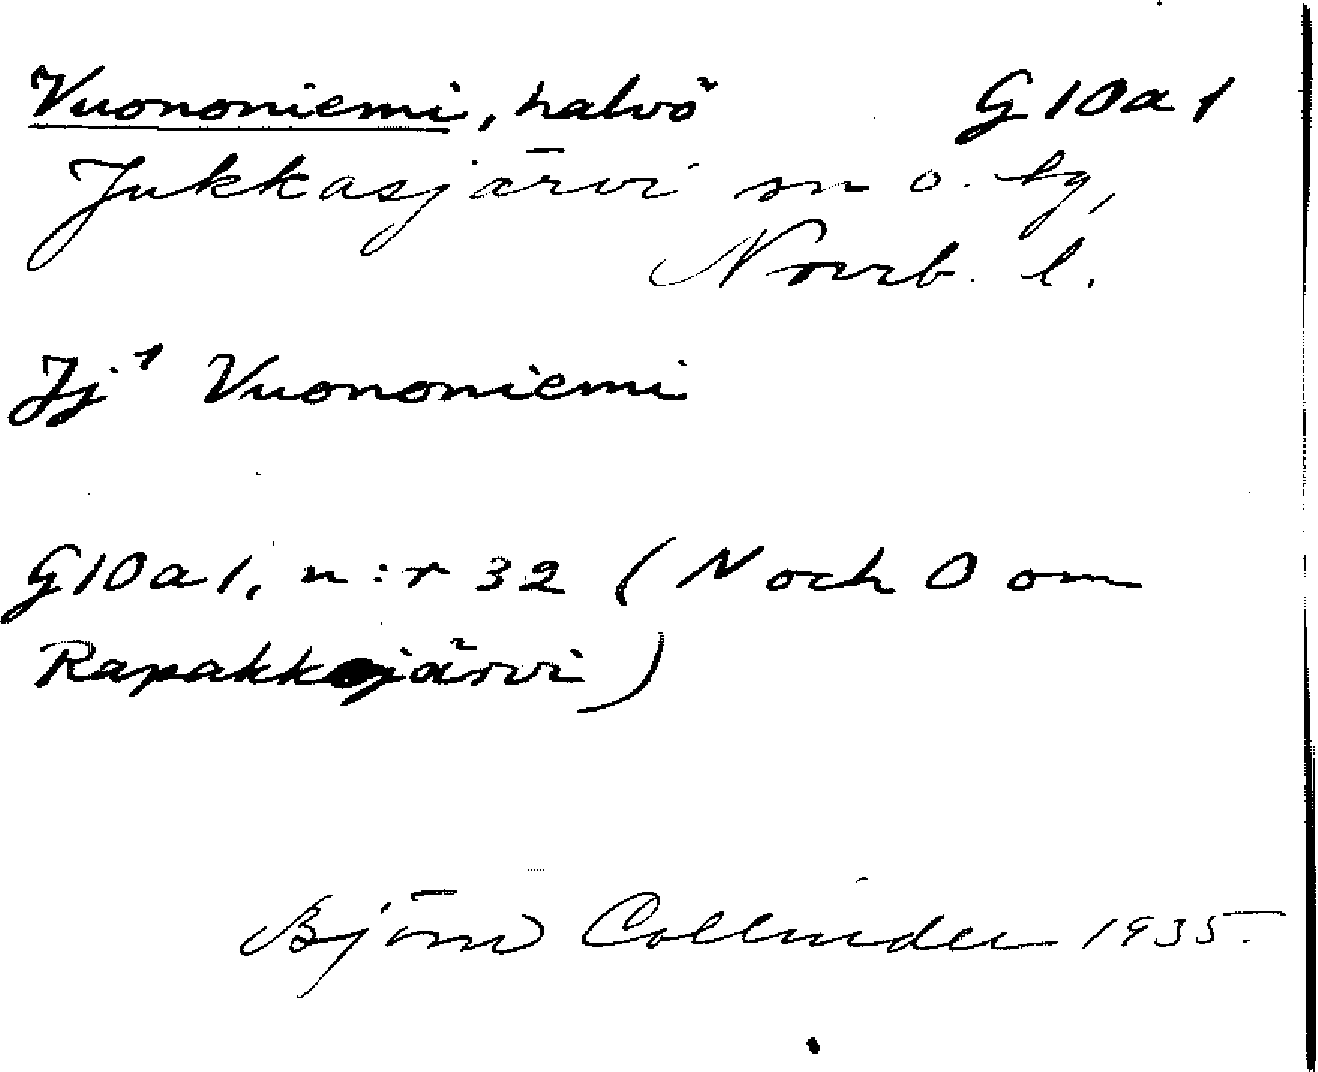 Vuononiemi, halvö G10a1
Jukkasjärvi sn o. tg,
Norrb. l.
Jj¹ Vuononiemi
G10a1, n:r 32 (N och O om
Rapakkojärvi)
Björn Collinder 1935.